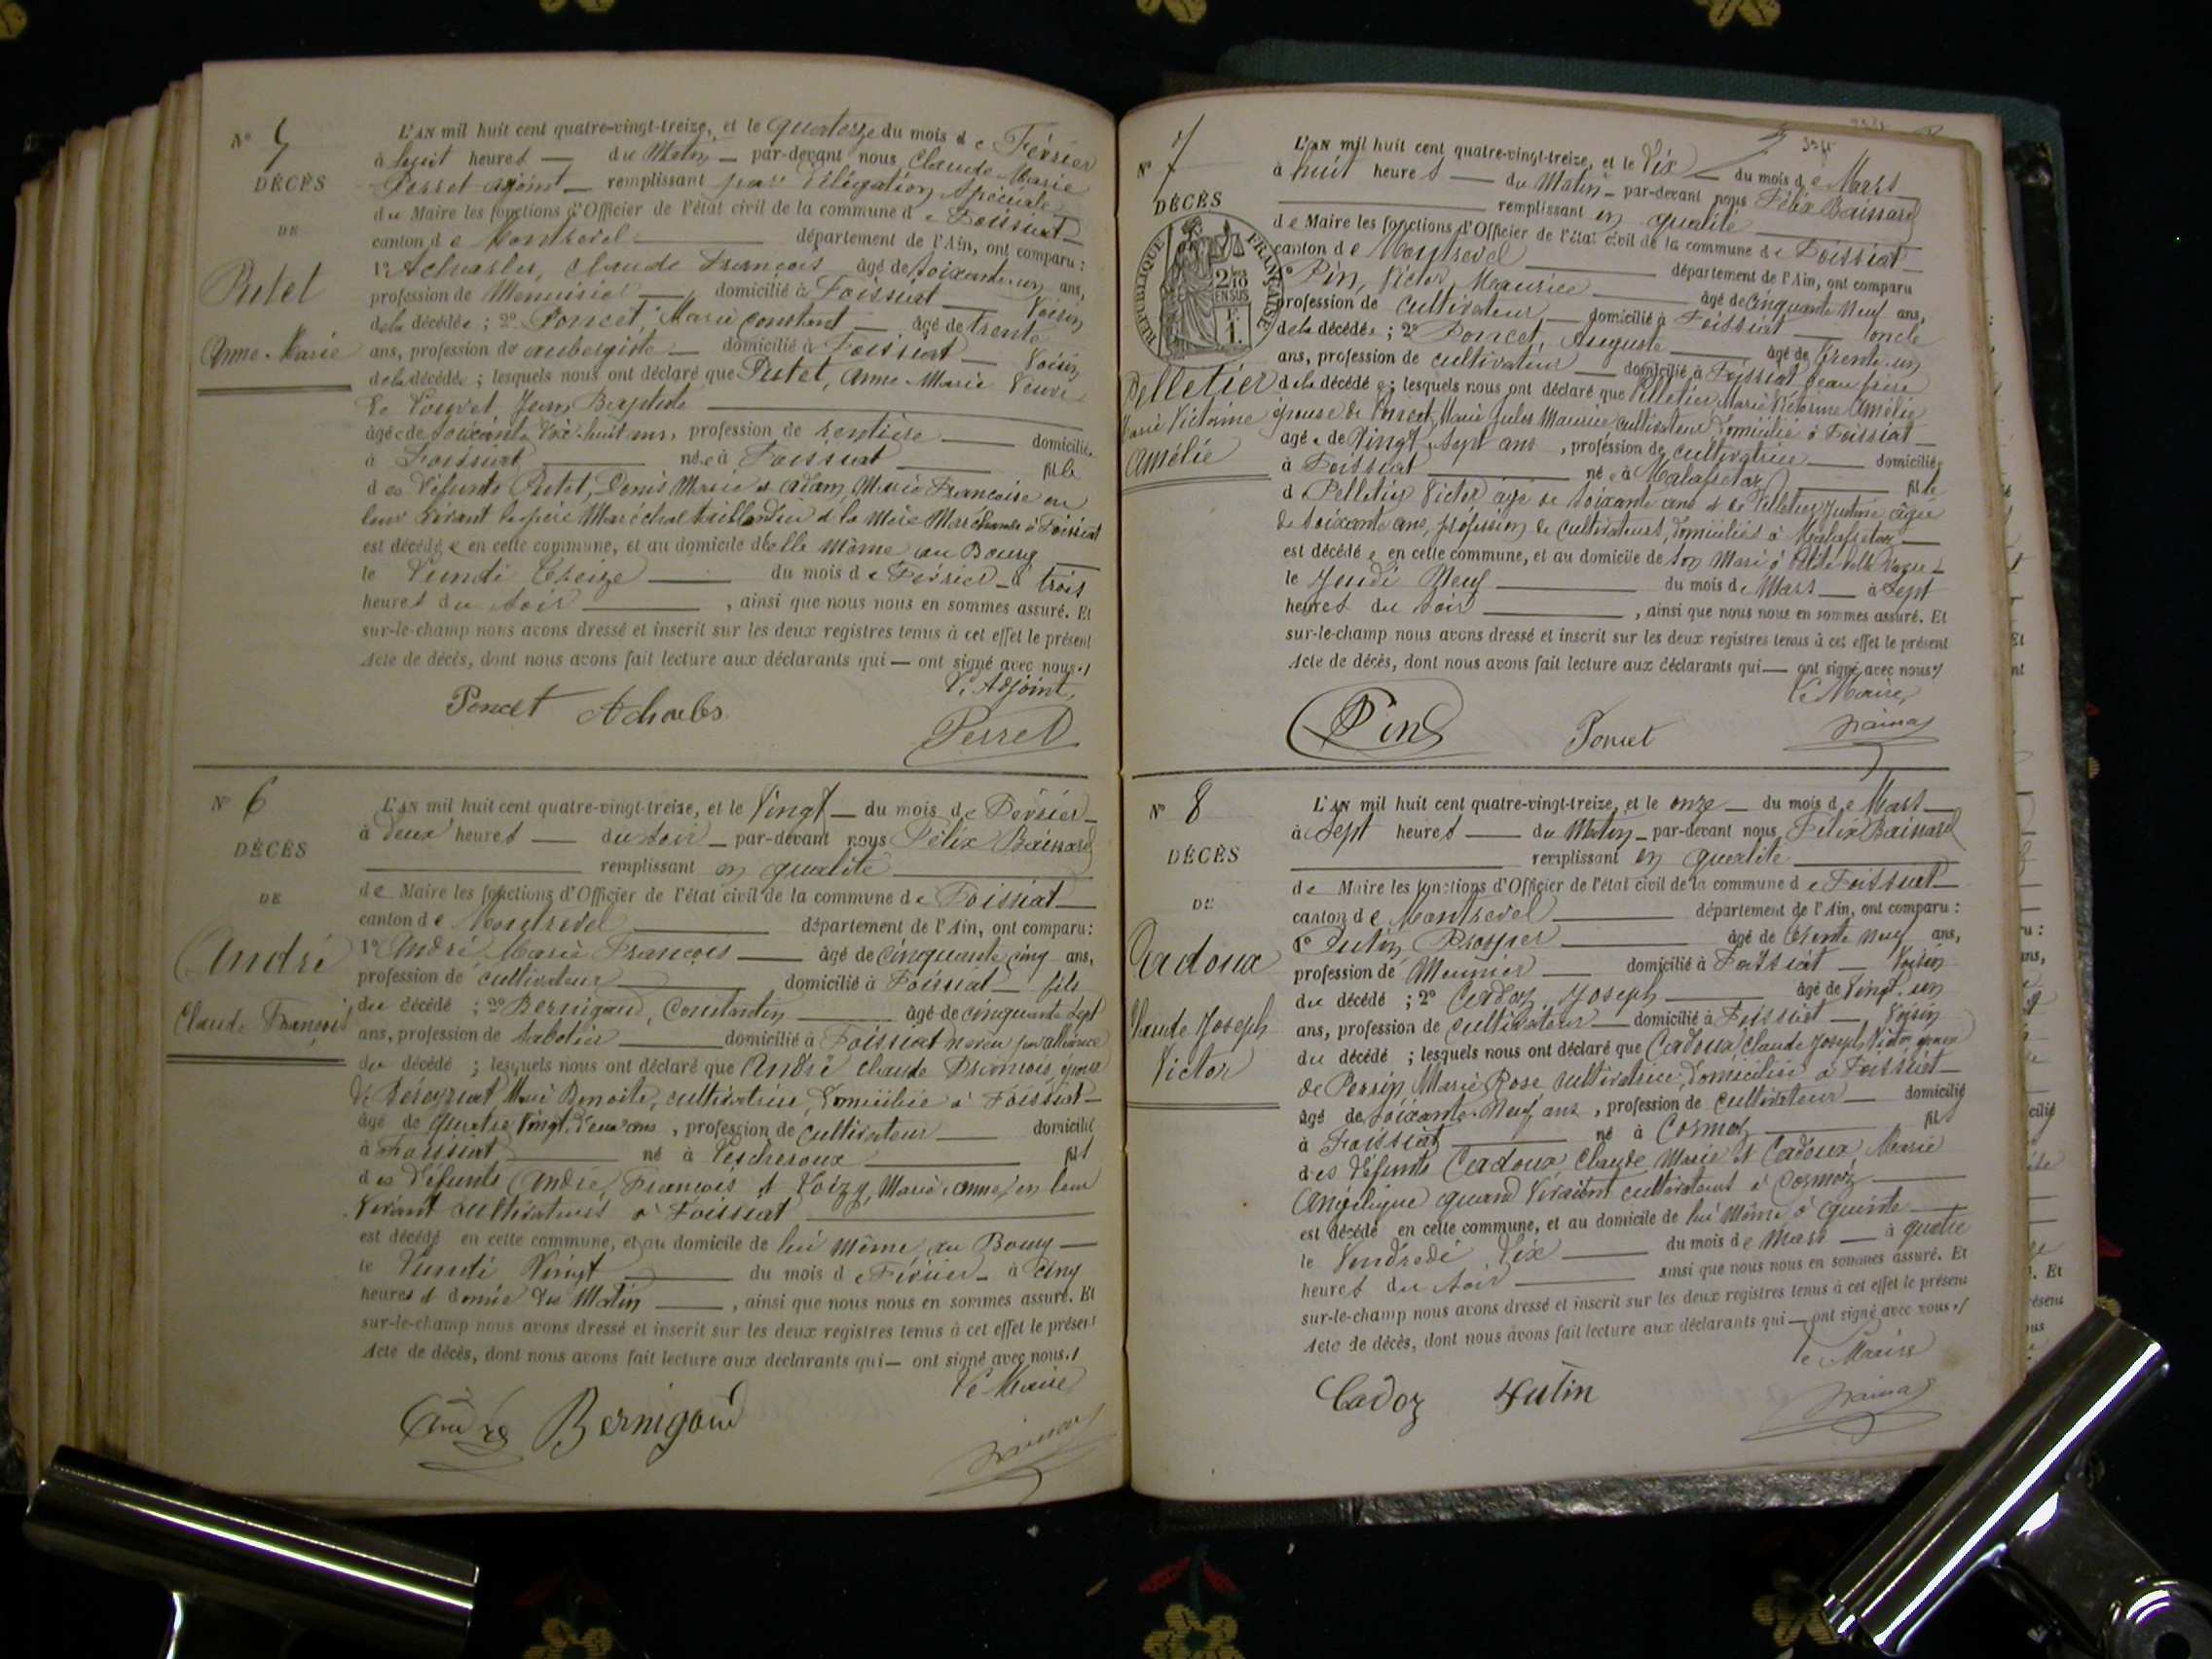 N° 5
DÉCÈS
DE
Putet
Anne-Marie
L'AN mil huit cent quatre-vingt-treize, et le quatorze du mois de Février
à huit heures — du Matin — par-devant nous Claude Marie
Perret adjoint — remplissant par délégation spéciale
du Maire les fonctions d'Officier de l'état civil de la commune de Foissiat
canton de Montrevel département de l'Ain, ont comparu :
1° Acharles, Claude François âgé de soixante-un ans,
profession de Menuisier — domicilié à Foissiat — Voisin
de la décédée ; 2° Poncet, Marie Constant — âgé de trente
ans, profession de aubergiste — domicilié à Foissiat — Voisin
de la décédée ; lesquels nous ont déclaré que Putet, Anne-Marie Veuve
de Jean Baptiste
âgée de soixante dix-huit ans, profession de rentière — domiciliée
à Foissiat née à Foissiat fille
des défunts Putet, Denis Marie et Adam, Marie Françoise en
leur vivant le père Maréchal taillandier et la Mère Marchande à Foissiat
est décédée en cette commune, et au domicile d'elle même au Bourg
le Lundi treize du mois de Février à trois
heures du soir , ainsi que nous nous en sommes assuré. Et
sur-le-champ nous avons dressé et inscrit sur les deux registres tenus à cet effet le présent
Acte de décès, dont nous avons fait lecture aux déclarants qui — ont signé avec nous./
L'Adjoint,
Poncet Acharles Perret
N° 6
DÉCÈS
DE
André
Claude François
L'AN mil huit cent quatre-vingt-treize, et le Vingt — du mois de Février —
à deux heures — du soir — par-devant nous Félix Baissard
remplissant en qualité
de Maire les fonctions d'Officier de l'état civil de la commune de Foissiat
canton de Montrevel département de l'Ain, ont comparu :
1° André Marie François — âgé de Cinquante cinq ans,
profession de cultivateur domicilié à Foissiat — fils
du décédé ; 2° Bernigaud, Constantin âgé de cinquante sept
ans, profession de sabotier domicilié à Foissiat neveu par alliance
du décédé ; lesquels nous ont déclaré que André Claude François, époux
de Marie Benoite, cultivatrice, domiciliée à Foissiat —
âgé de quatre Vingt-deux ans, profession de cultivateur — domicilié
à Foissiat né à Lescheroux fils
des défunts André, François et Marie Anne, en leur
Vivant cultivateurs à Foissiat
est décédé en cette commune, et au domicile de lui même au Bourg —
le Lundi Vingt du mois de Février — à cinq
heures et demie du Matin , ainsi que nous nous en sommes assuré. Et
sur-le-champ nous avons dressé et inscrit sur les deux registres tenus à cet effet le présent
Acte de décès, dont nous avons fait lecture aux déclarants qui — ont signé avec nous./
Le Maire,
André Bernigaud
N° 7
DÉCÈS
RÉPUBLIQUE FRANÇAISE
2/10
EN SUS
Pelletier
Marie Victorine
Amélie
L'AN mil huit cent quatre-vingt-treize, et le dix — du mois de Mars
à huit heures — du Matin — par-devant nous Félix Baissard
remplissant en qualité
de Maire les fonctions d'Officier de l'état civil de la commune de Foissiat
canton de Montrevel département de l'Ain, ont comparu
1° Pin, Victor Maurice âgé de cinquante neuf ans,
profession de cultivateur — domicilié à Foissiat oncle
de la décédée ; 2° Poncet, Auguste âgé de trente-un
ans, profession de cultivateur domicilié à Foissiat beau frère
de la décédée ; lesquels nous ont déclaré que Pelletier Marie Victorine Amélie
épouse de Poncet, Marie Jules Maurice cultivateur domicilié à Foissiat —
âgée de Vingt-sept ans, profession de cultivatrice — domiciliée
à Foissiat née à Malafretaz fille
de Pelletier Victor âgé de soixante ans et de Pelletier Justine âgée
de soixante ans, profession de cultivateurs, domiciliés à Malafretaz —
est décédée en cette commune, et au domicile de son Mari à
le Jeudi Neuf du mois de Mars — à sept
heures du soir , ainsi que nous nous en sommes assuré. Et
sur-le-champ nous avons dressé et inscrit sur les deux registres tenus à cet effet le présent
Acte de décès, dont nous avons fait lecture aux déclarants qui — ont signé avec nous./
Le Maire,
Pin Poncet
N° 8
DÉCÈS
DE
Cadoux
Claude Joseph
Victor
L'AN mil huit cent quatre-vingt-treize, et le onze — du mois de Mars —
à sept heures — du Matin — par-devant nous Félix Baissard
remplissant en qualité
de Maire les fonctions d'Officier de l'état civil de la commune de Foissiat —
canton de Montrevel département de l'Ain, ont comparu :
1° Prosper âgé de trente neuf ans,
profession de Meunier — domicilié à Foissiat — Voisin
du décédé ; 2° Cadoz, Joseph âgé de Vingt-un
ans, profession de cultivateur — domicilié à Foissiat — Voisin
du décédé ; lesquels nous ont déclaré que Cadoux Claude Joseph Victor époux
de Perrin Marie Rose cultivatrice, domiciliée à Foissiat —
âgé de soixante-neuf ans, profession de cultivateur — domicilié
à Foissiat né à Cormoz fils
des défunts Cadoux, Claude Marie et Cadoux, Marie
Angélique quand vivaient cultivateurs à Cormoz
est décédé en cette commune, et au domicile de lui même à
le Vendredi dix du mois de Mars — à quatre
heures du soir ainsi que nous nous en sommes assuré. Et
sur-le-champ nous avons dressé et inscrit sur les deux registres tenus à cet effet le présent
Acte de décès, dont nous avons fait lecture aux déclarants qui — ont signé avec nous./
Le Maire
Cadoz